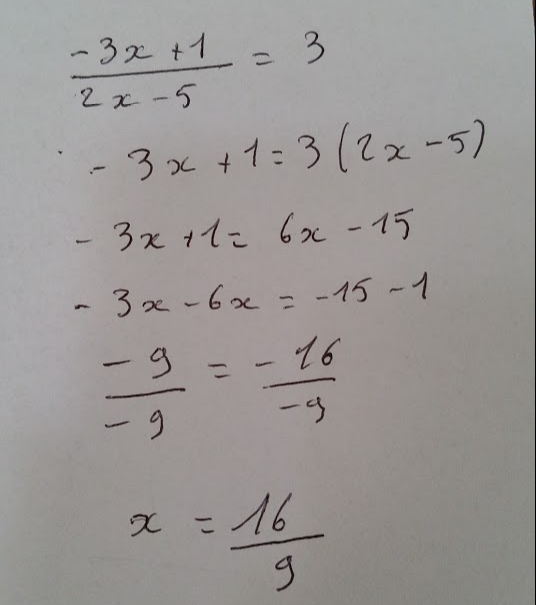 -3x+1/2x-5 = 3
-3x+1=3(2x-5)
-3x+1= 6x-15
-3x-6x=-15-1
-9/-9 = -16/-9
x = 16/9